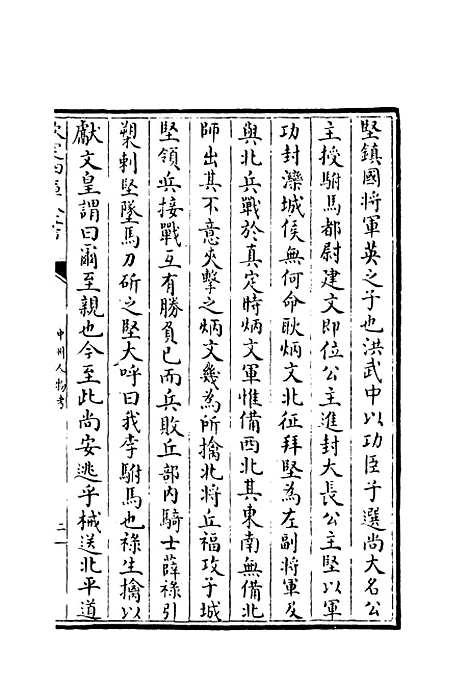 堅鎮國將軍英之子也洪武中以功臣子選尚大名公
主授駙馬都尉建文即位公主進封大長公主堅以軍
功封灤城侯無何命耿炳文北征拜堅為左副將軍及
與北兵戰於真定時炳文軍惟備西北其東南無備北
師出其不意夾擊之炳文幾為所擒北將丘福攻子城
堅領兵接戰互有勝負已而兵敗丘部內騎士薛祿引
槊刺堅墜馬刀斫之堅大呼曰我李駙馬也祿生擒以
獻文皇謂曰爾至親也今至此尚安逃乎械送北平道
中州人物考